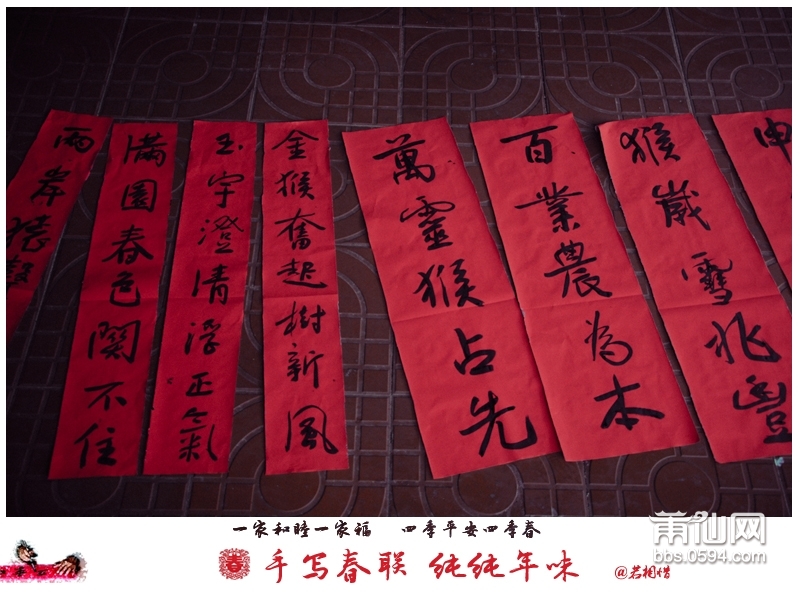 申
猴歲雪兆豐
百業農為本
萬靈猴占先
金猴奮起樹新風
玉宇澄清浮正氣
滿園春色関不住
兩岸猿聲
一家和睦一家福 四季平安四季春
春 手写春联 纯纯年味 @若相惜
莆仙网
bbs.0594.com